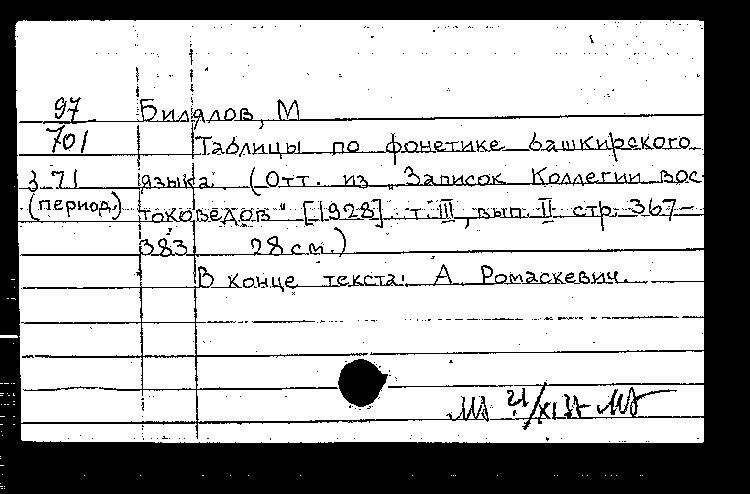 97
701
З 71
(период.)
Билялов, М
Таблицы по фонетике башкирского
языка. (Отт. из „Записок Коллегии вос-
токоведов" [1928] т. III, вып. II стр. 367–
383. 28 см.)
В конце текста: А. Ромаскевич.
21/XI 37